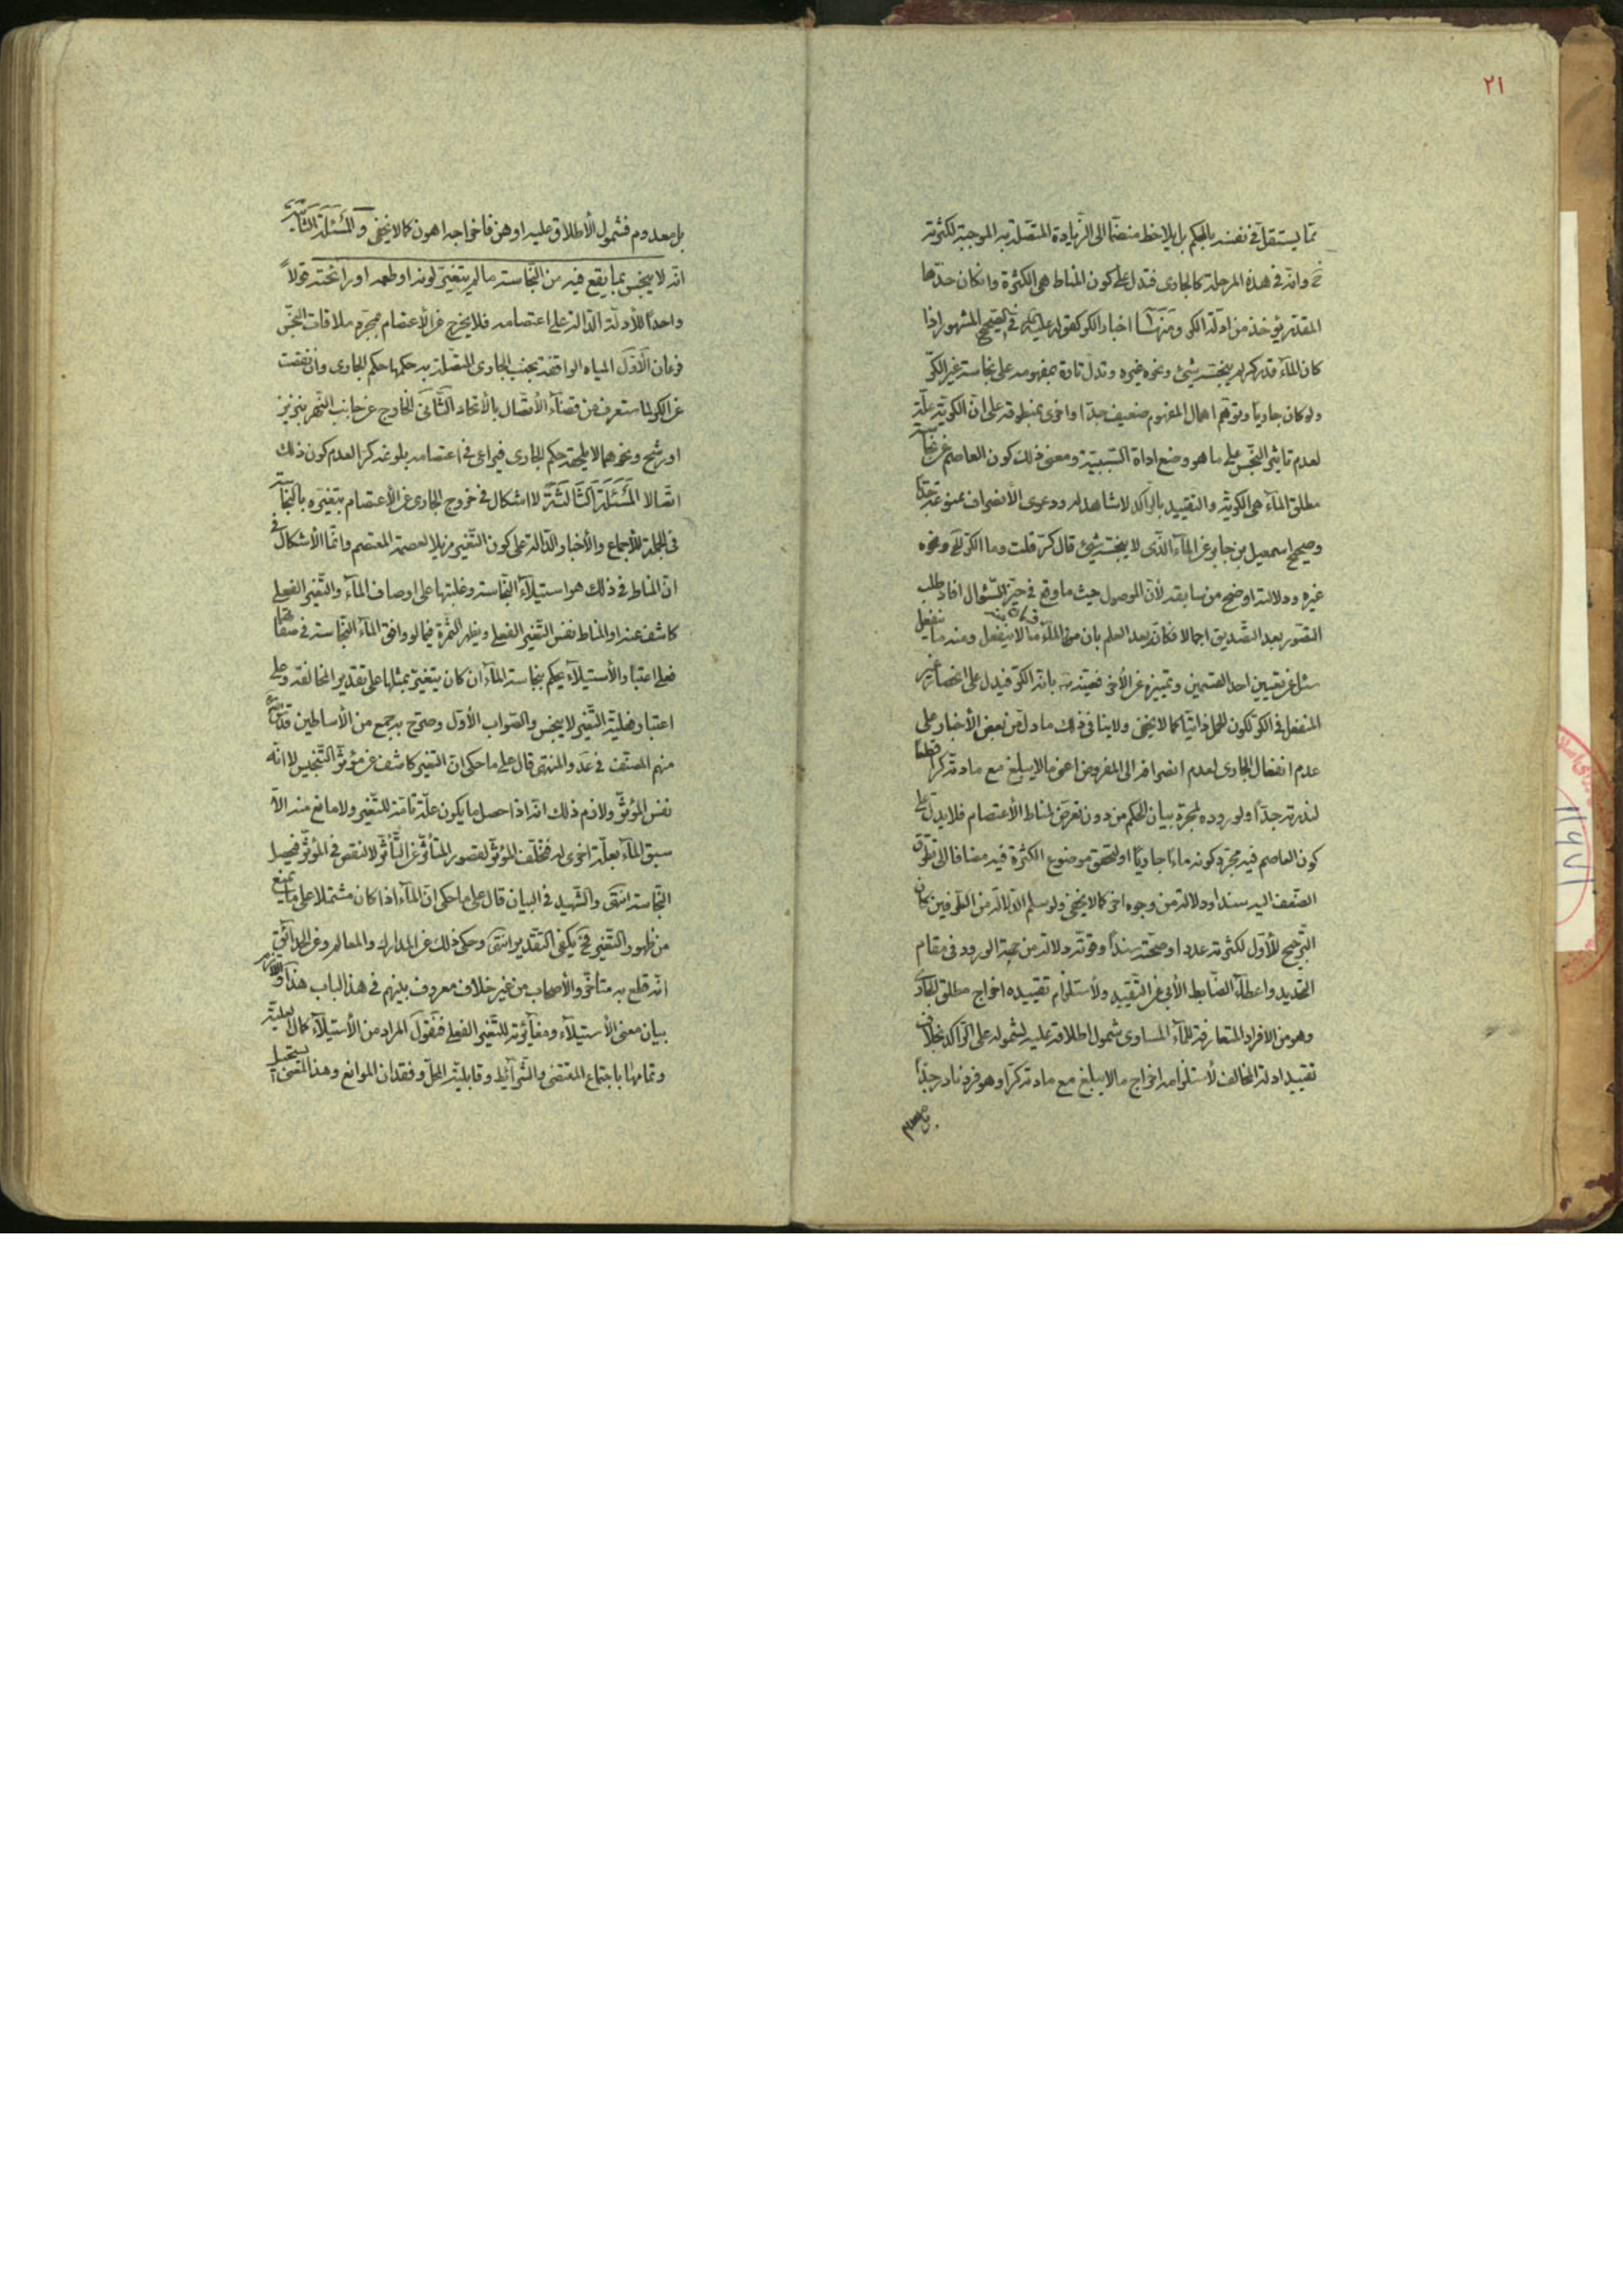 ٢١
مما يستقل في نفسه بالحكم بل يلاحظ منضما الى الزيادة المتصلة به الموجبة لكثرته
وانه في هذه المرحلة كالجارى فتدل على كون المناط هى الكثرة وان كان حدها
المقدر يؤخذ من ادلة الكر ومنها اخبار الكر كقوله عليه في الصحيح المشهور اذا
كان الماء قدر كر لم ينجسه شئ ونحوه غيره وتدل تارة بمفهومه على نجاسة غير الكر
ولو كان جاريا وتوهم اهمال المفهوم ضعيف جدا واخرى بمنطوقه على ان الكرية علة
لعدم تاثير النجس على ما هو وضع اداة السببية ومعنى ذلك كون العاصم عن نجاسة
مطلق الماء هى الكرية والتقييد بالراكد لا شاهد له ودعوى الأنصراف ممنوعة جدا
وصحيح اسمعيل بن جابر عن الماء الذى لا ينجسه شئ قال كر قلت وما الكر ونحوه
غيره ودلالته اوضح من سابقه لأن الموصول حيث ما وقع في حيز السؤال افاد طلب
التصور بعد التصديق اجمالا فكانه بعد العلم بان من الماء ما لا ينفعل ومنه ما ينفعل
سئل عن تعيين احد القسمين وتمييزه عن الأخر فعينه بانه الكر فيدل على انحصار غير
المنفعل في الكر لكون المحل ذاتيا كما لا يخفى ولا ينافى ذلك ما دل من بعض الأخبار على
عدم انفعال الجارى لعدم انصرافه الى المفروض اعنى ما لا يبلغ مع مادته كرا قطعا
لندرته جدا ولوروده لمجرد بيان الحكم من دون تعرض لمناط الأعتصام فلا يدل على
كون العاصم فيه مجرد كونه ماءا جاريا او لتحقق موضوع الكثرة فيه مضافا الى تطرق
الضعف اليه سندا ودلالة من وجوه اخر كما لا يخفى ولو سلم الدلالة من الطرفين كان
الترجيح للأول لكثرته عددا وصحته سندا وقوته دلالة من جهة الورود في مقام
التحديد واعطاء الضابط الأبى عن التقييد ولأستلزام تقييده اخراج مطلق الجارى
وهو من الافراد المتعارفة للماء المساوى شمول اطلاقه عليه لشموله على الراكد بخلاف
تقييد ادلة المخالف لأستلزامه اخراج ما لا يبلغ مع مادته كرا وهو فرد نادر جدا
بل معدوم
بل معدوم فشمول الأطلاق عليه اوهن فاخراجه اهون كما لا يخفى والمسئلة الثانية
انه لا ينجس بما يقع فيه من النجاسة ما لم يتغير لونه او طعمه او رائحته قولا
واحدا للأدلة الدالة على اعتصامه فلا يخرج عن الأعتصام بمجرد ملاقات النجس
فرعان الأول المياه الواقفة بجنب الجارى المتصلة به حكمها حكم الجارى وان نقصت
عن الكر لما ستعرف من قضاء الأتصال بالأتحاد الثانى الخارج عن جانب النهر بنزيز
او رشح ونحوهما لا يلحقه حكم الجارى فيراعى في اعتصامه بلوغه كرا لعدم كون ذلك
اتصالا المسئلة الثالثة لا اشكال في خروج الجارى عن الأعتصام بتغيره بالنجاسة
في الجملة للأجماع والأخبار الدالة على كون التغير مزيلا لعصمة المعتصم وانما الأشكال في
ان المناط في ذلك هو استيلاء النجاسة وغلبتها على اوصاف الماء والتغير الفعلى
كاشف عنه او المناط نفس التغير الفعلى ويظهر الثمرة فيما لو وافق الماء النجاسة في صفاتها
فعلى اعتبار الأستيلاء يحكم بنجاسة الماء ان كان يتغير بمثلها على تقدير المخالفة وعلى
اعتبار فعلية التغير لا ينجس والصواب الأول وصرح به جمع من الأساطين
منهم المصنف في عد والمنتهى قال على ما حكى ان التغير كاشف عن مؤثر التنجيس لا انه
نفس المؤثر ولازم ذلك انه اذا حصل ما يكون علة تامة للتغير ولا مانع منه الا
سبق الماء بعلة اخرى له فتخلف المؤثر لقصور المتأثر عن التأثر لا لنقص في المؤثر فيحصل
النجاسة انتهى والشهيد في البيان قال على ما حكى ان الماء اذا كان مشتملا على ما يمنع
من ظهور التغير فح يكفى التقدير انتهى وحكى ذلك عن المدارك والمعالم وعن الحدائق
انه قطع به متأخرو الأصحاب من غير خلاف معروف بينهم في هذا الباب هذا واللازم
بيان معنى الأستيلاء ومغايرته للتغير الفعلى فنقول المراد من الأستيلاء كمال العلية
وتمامها باجتماع المقتضى والشرائط وقابلية المحل وفقدان الموانع وهذا المعنى يستحيل